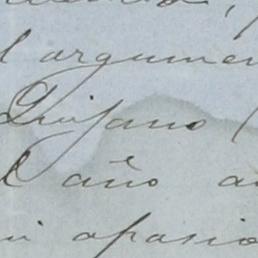 l argumen
Quijano (
l año a
i apasio